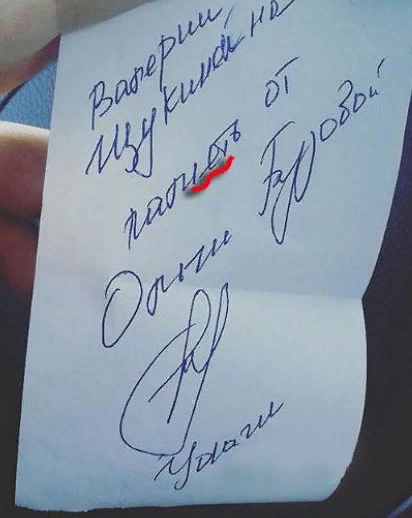 Валерии
Щукиной, на
памиоть от
Ольги Бузовой
Удачи